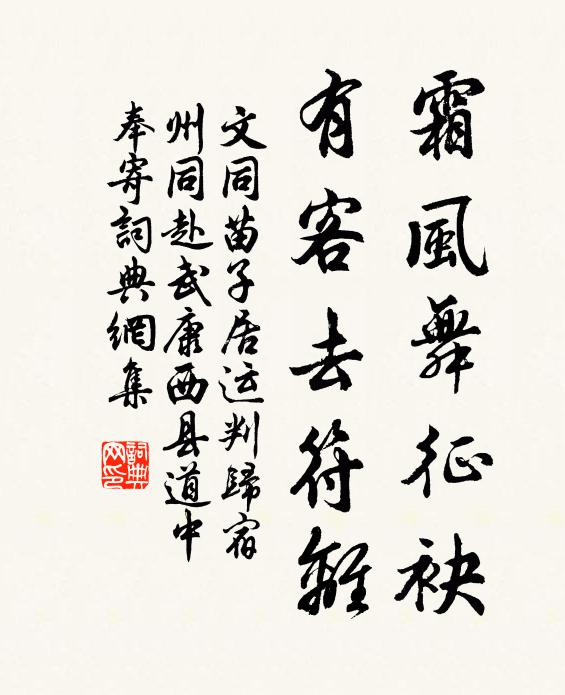 霜風舞征袂
有客去符離
文同苗子居运判歸宿
州同赴武康西县道中
奉寄詞典網集
詞典网印